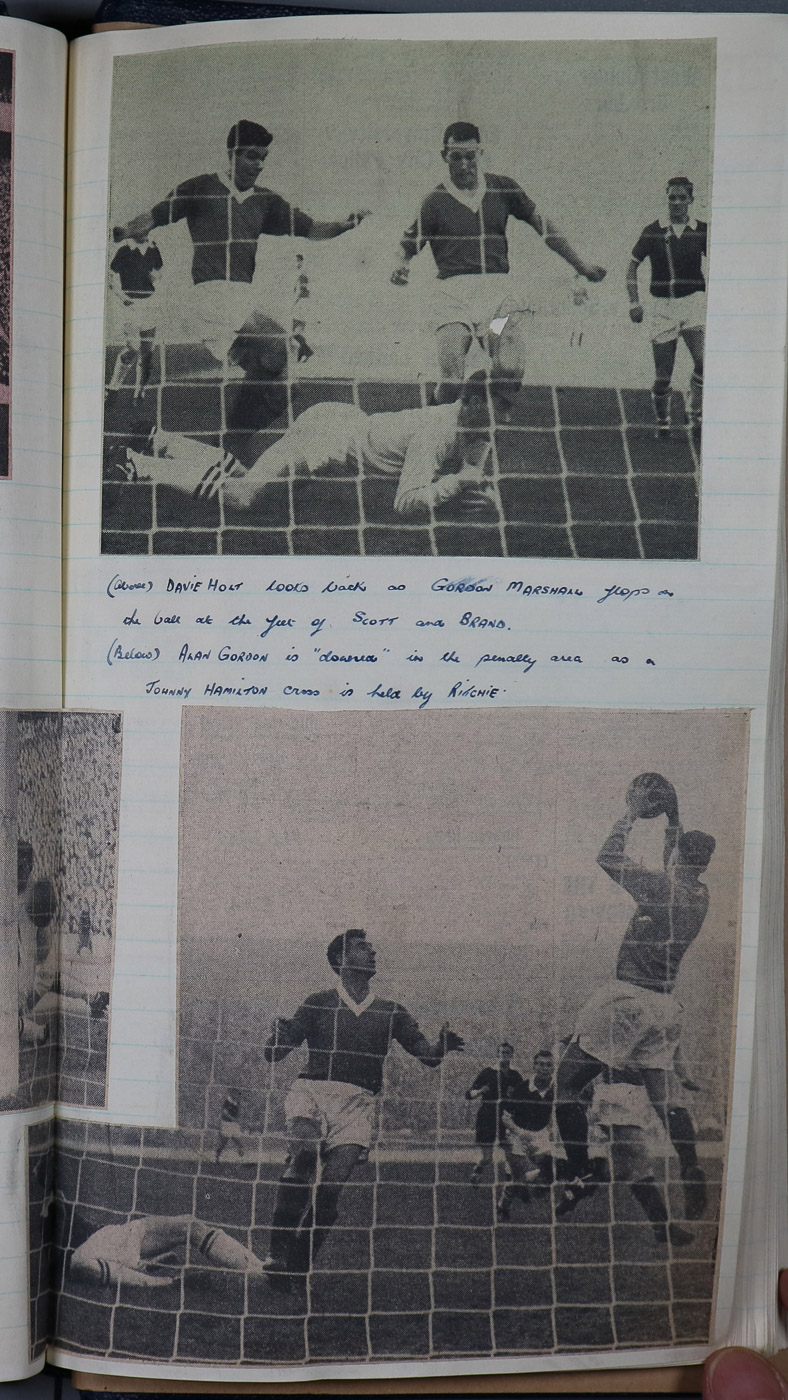 (above) DAVIE HOLT looks back as GORDON MARSHALL flops on
the ball at the feet of SCOTT and BRAND.
(Below) ALAN GORDON is "downed" in the penalty area as a
JOHNNY HAMILTON cross is held by RITCHIE.